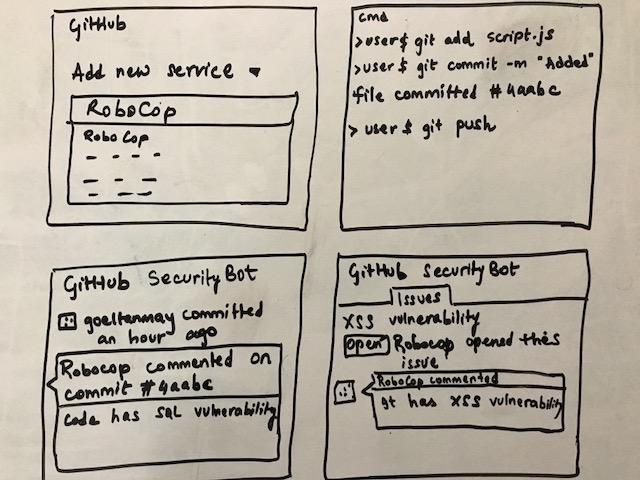 GitHub
Add new service
RoboCop
RoboCop
cmd
>user$ git add script.js
>user$ git commit -m "Added"
file committed #4aabc
> user$ git push
GitHub SecurityBot
goeltanmay committed
an hour ago
Robocop commented on
commit #4aabc
Code has sql vulnerability
GitHub SecurityBot
Issues
XSS vulnerability
open Robocop opened this
issue
RoboCop commented
It has XSS vulnerability